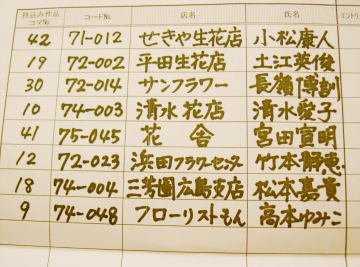 持込み作品 コマNo. コードNo. 店名 氏名 エントリ
42 71-012 せきや生花店 小松康人
19 72-002 平田生花店 土江英俊
30 72-014 サンフラワー 長嶺博訓
10 74-003 清水花店 清水愛子
41 75-045 花舎 宮田宣明
12 72-023 浜田フラワーセンター 竹本静恵
18 74-004 三芳園広島支店 松本嘉貴
9 74-048 フローリストもん 高本ゆみこ